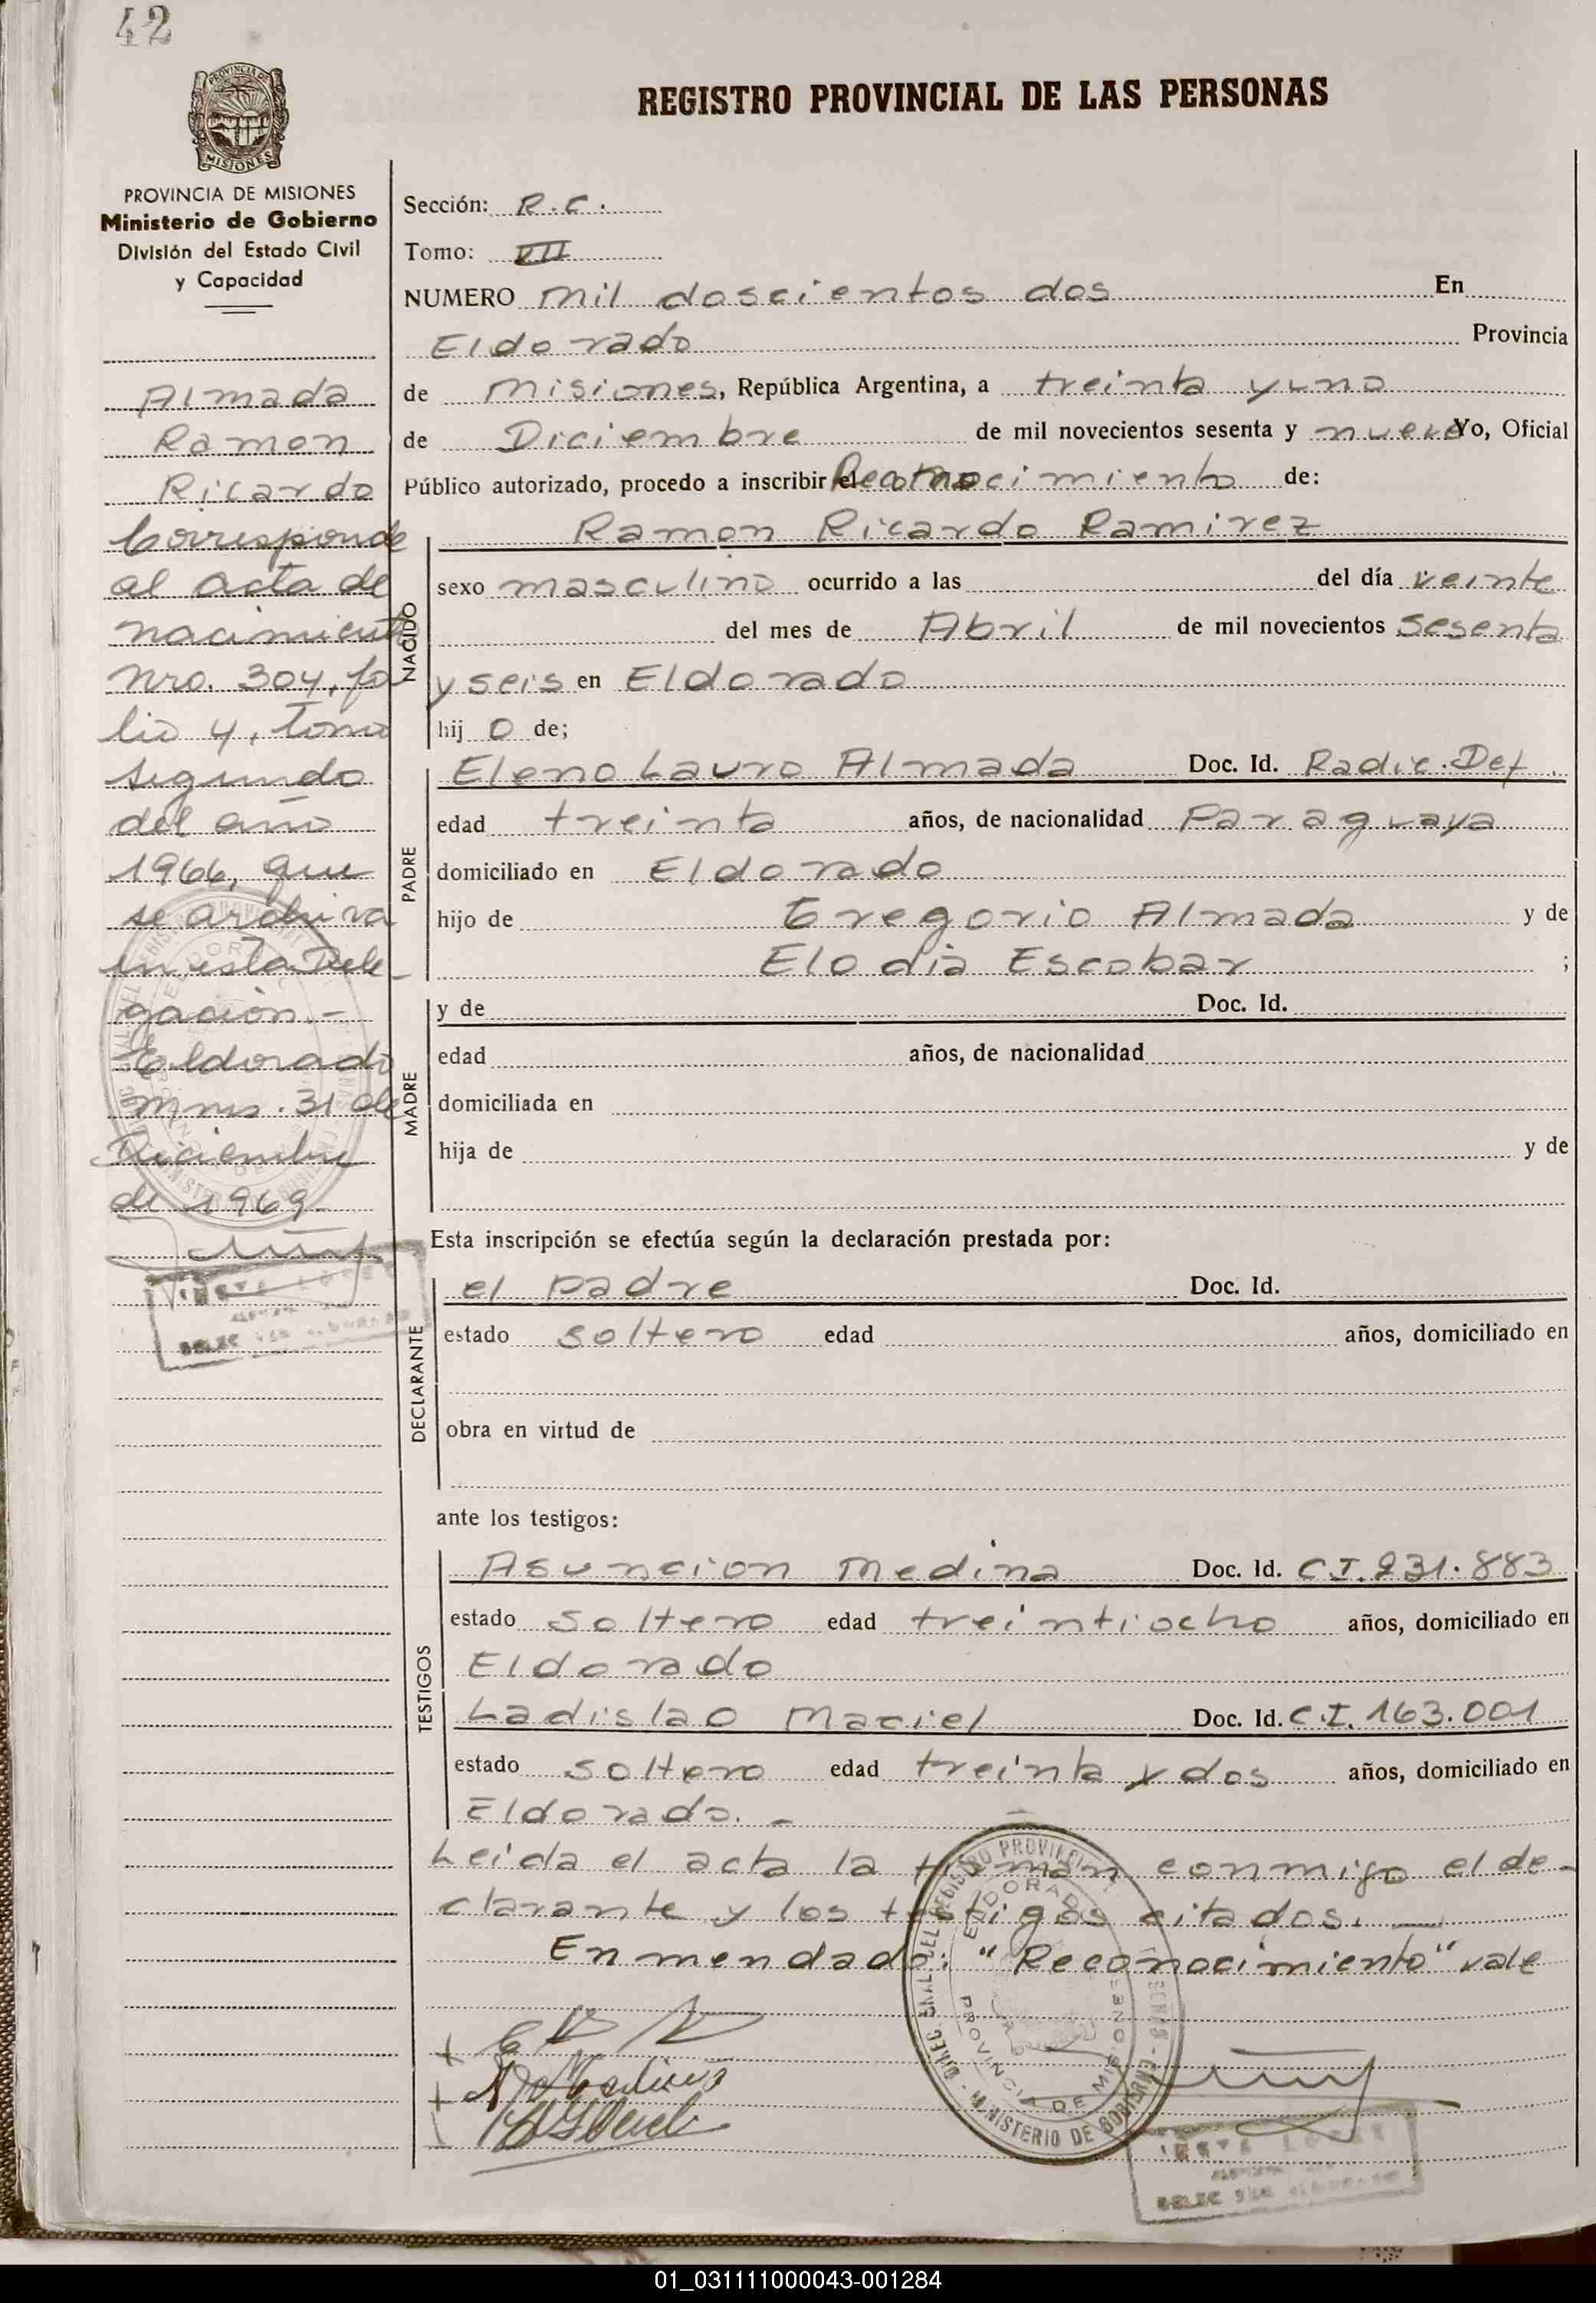 42
PROVINCIA DE MISIONES
MISIONES
PROVINCIA DE MISIONES
Ministerio de Gobierno
División del Estado Civil
y Capacidad
Almada
Ramon
Ricardo
Corresponde
al acta de
nacimiento
Nro. 304, fo
lio 4, tomo
segundo
del año
1966, que
se archiva
en esta Dele
gación.-
Eldorado
Mnes. 31 de
Diciembre
de 1969
REGISTRO PROVINCIAL DE LAS PERSONAS
Sección: R.C.
Tomo: VII
NUMERO mil doscientos dos En
Eldorado Provincia
de Misiones, República Argentina, a treinta y uno
de Diciembre de mil novecientos sesenta y nueve Yo, Oficial
Público autorizado, procedo a inscribir el Reconocimiento de:
Ramon Ricardo Ramirez
NACIDO
sexo masculino ocurrido a las del día veinte
del mes de Abril de mil novecientos sesenta
y seis en Eldorado
hij o de;
PADRE
Eleno Lauro Almada Doc. Id. Radic. Def.
edad treinta años, de nacionalidad Paraguaya
domiciliado en Eldorado
hijo de Gregorio Almada y de
Elodia Escobar ;
MADRE
y de Doc. Id.
edad años, de nacionalidad
domiciliada en
hija de y de
Esta inscripción se efectúa según la declaración prestada por:
DECLARANTE
el padre Doc. Id.
estado soltero edad años, domiciliado en
obra en virtud de
ante los testigos:
TESTIGOS
Asuncion Medina Doc. Id. C.I. 231.883
estado soltero edad treintiocho años, domiciliado en
Eldorado
Ladislao Maciel Doc. Id. C.I. 163.001
estado soltero edad treinta y dos años, domiciliado en
Eldorado. -
Leida el acta la firman conmigo el de-
clarante y los testigos citados. —
Enmendado: "Reconocimiento" vale
ELDORADO
PROVINCIA DE MISIONES
MINISTERIO DE GOBIERNO
01_031111000043-001284